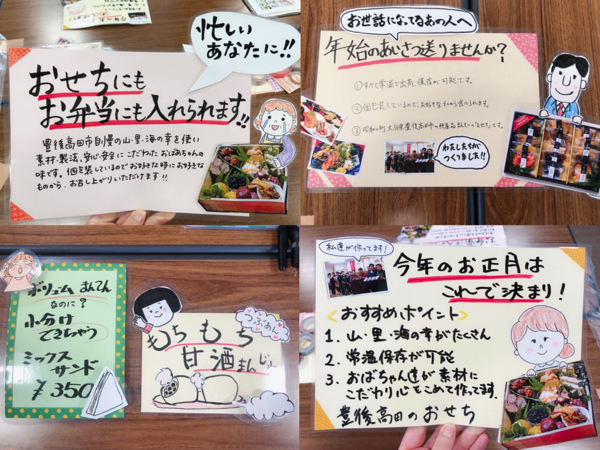 忙しい
あなたに!!
おせちにも
お弁当にも入れられます!!
豊後高田市自慢の山・里・海の幸を使い
素材、製法、安心・安全にこだわったおばあちゃんの
味です。個包装しているのでお好きな時にお好きな
ものから、お召し上がりいただけます!!
お世話になってるあの人へ
年始のあいさつ送りませんか?
①すべて常温で出荷、保存が可能です。
②個包装しているので、お好きなものから食べられます。
わたしたちが
つくりました!!
ボリューム まんてん
なのに?
小分け
できちゃう
ミックス
サンド
¥350
つぶあん
もちもち
甘酒まんじゅう
私達が作ってます!
今年のお正月は
これで決まり!
<おすすめポイント>
1. 山・里・海の幸がたくさん
2. 常温保存が可能
3. おばちゃん達が素材に
こだわり心をこめて作ってます。
豊後高田のおせち